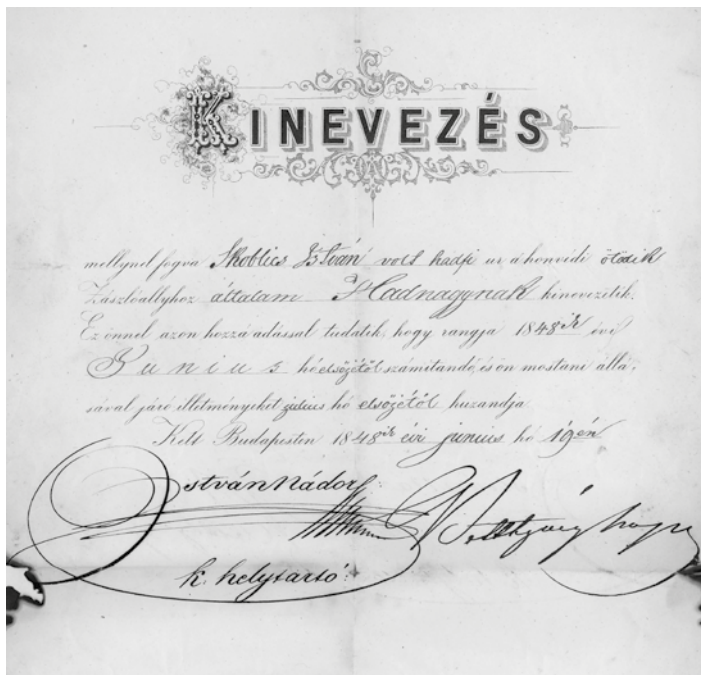 KINEVEZÉS
mellynel fogva Skoblics István volt hadfi ur a honvédi ötödik
Zászlóallyhoz általam Hadnagynak kineveztetik.
Ez önnel azon hozzáadással tudatik, hogy rangja 1848ik évi
Junius hó elsőjétől számitandó, is ön mostani állá,
sával járó illetményeket julius hó elsőjétől huzandja
Kelt Budapesten 1848ik évi junius hó 19én
István Nádor
k. helytartó